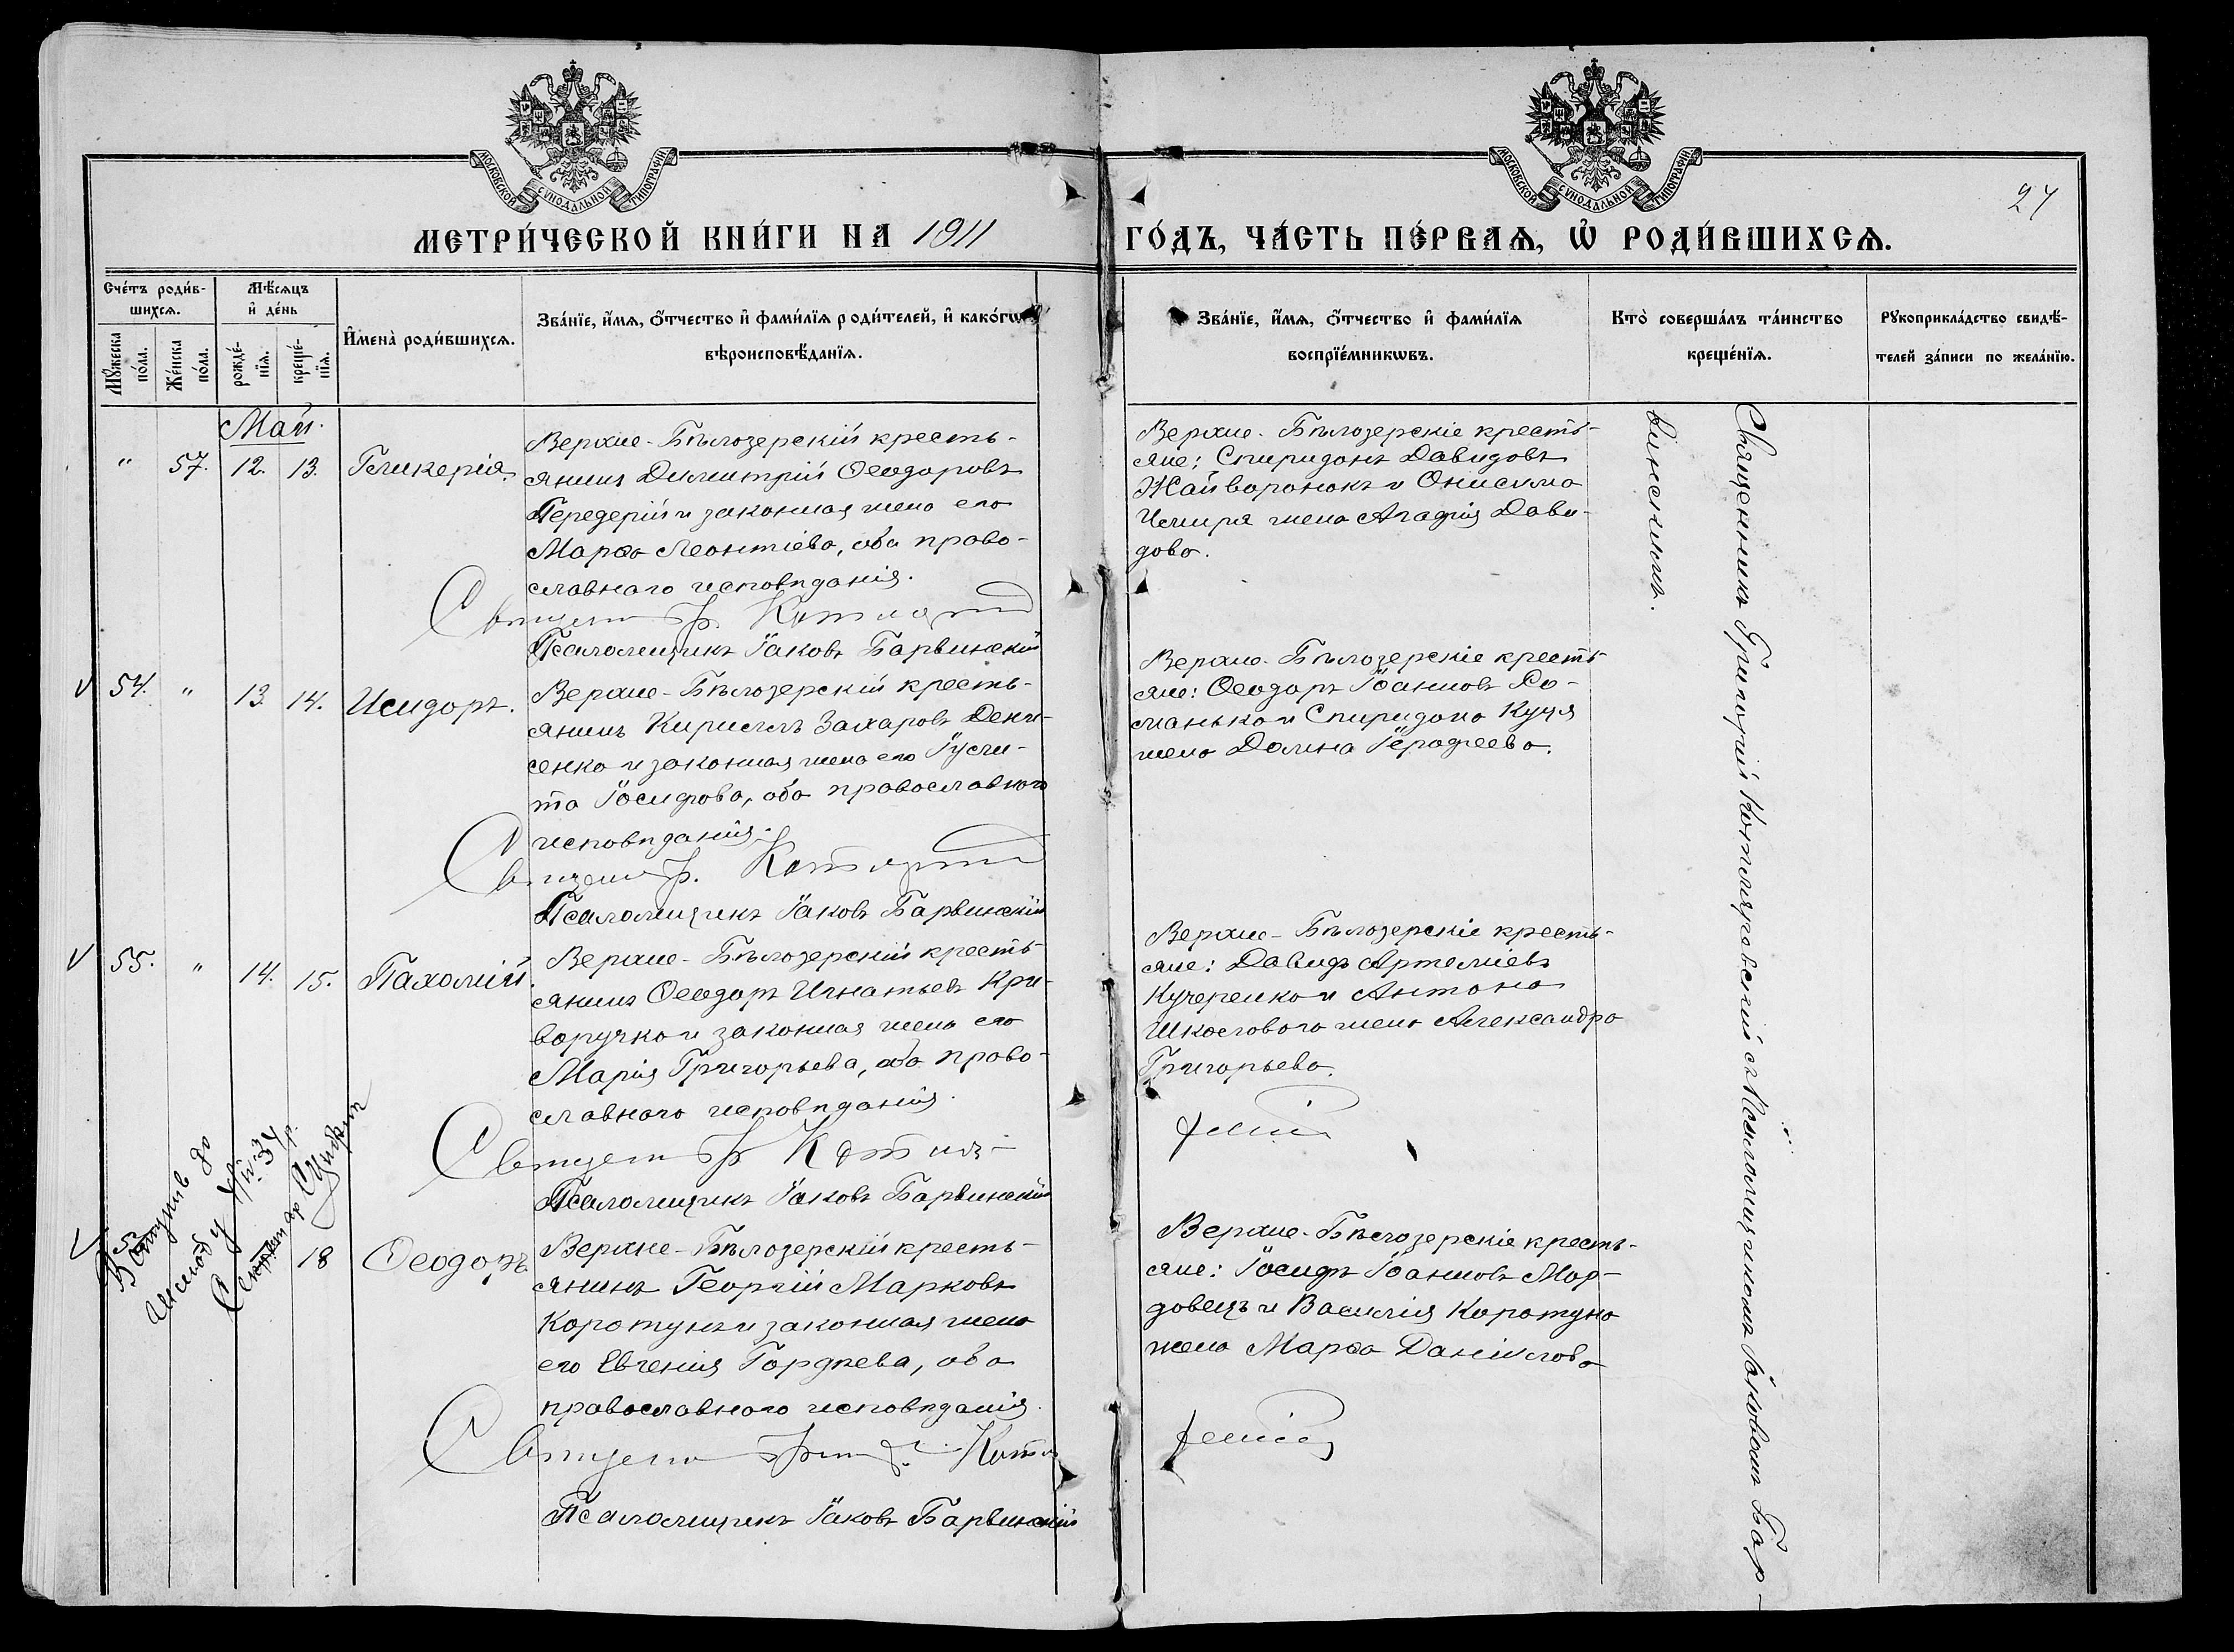 МОСКОВСКОЙ СѴНОДАЛЬНОЙ ТИПОГРАФІИ
МОСКОВСКОЙ СѴНОДАЛЬНОЙ ТИПОГРАФІИ
24
МЕТРИ́ЧЕСКОЙ КНИ́ГИ НА 1911 ГО́ДЪ, ЧА́СТЬ ПЕ́РВАѦ, Ѡ РОДИ́ВШИХСѦ.
Сче́тъ роди́в-
шихсѧ.
Мѣ́сѧцъ
и҆ де́нь
Мꙋ́жеска по́ла.
Же́нска по́ла.
рожде́-
нїѧ.
креще́-
нїѧ.
И҆мена̀ роди́вшихсѧ.
Зва́нїе, и҆́мѧ, ѻ҆́тчество и҆ фами́лїѧ роди́телей, и҆ како́гѡ
вѣроисповѣ́данїѧ.
Зва́нїе, и҆́мѧ, ѻ҆́тчество и҆ фами́лїѧ
воспрїе́мникѡвъ.
Кто̀ соверша́лъ та́инство
креще́нїѧ.
Рꙋкоприкла́дство свидѣ́-
телей за́писи по жела́нїю.
Май.
" 57. 12. 13. Гликерія.
Верхне-Бѣлозерскій кресть-
янинъ Димитрій Ѳеодоровъ
Передерій и законная жена его
Марѳа Леонтіева, оба право-
славнаго исповѣданія.
Псаломщикъ Іаковъ Барвинскій
Верхне-Бѣлозерскіе кресть-
яне: Спиридонъ Давидовъ
Жайворонокъ и Онисима
Чмиря жена Агафія Дави-
дова.
54. " 13. 14. Исидоръ.
Верхне-Бѣлозерскій кресть-
янинъ Кириллъ Захаровъ Дени-
сенко и законная жена его Іусти-
на Іосифова, оба православнаго
исповѣданія.
Псаломщикъ Іаковъ Барвинскій
Верхне-Бѣлозерскіе кресть-
яне: Ѳеодоръ Іоанновъ Ро-
манько и Спиридона Куця
жена Домна Іерофеева.
55. " 14. 15. Пахомій.
Верхне-Бѣлозерскій кресть-
янинъ Ѳеодоръ Игнатьевъ Кри-
воручко и законная жена его
Марія Григорьева, оба право-
славнаго исповѣданія.
Псаломщикъ Іаковъ Барвинскій
Верхне-Бѣлозерскіе кресть-
яне: Давидъ Артеміевъ
Кучеренко и Антона
Школового жена Александра
Григорьева.
18 Ѳеодоръ.
Верхне-Бѣлозерскій кресть-
янинъ Георгій Марковъ
Коротунъ и законная жена
его Евгенія Гордѣева, оба
православнаго исповѣданія.
Псаломщикъ Іаковъ Барвинскій
Верхне-Бѣлозерскіе кресть-
яне: Іосифъ Іоанновъ Мор-
довецъ и Василія Коротуна
жена Марѳа Даніилова
Священникъ Григорій Котляревскій съ псаломщикомъ Іаковомъ Бар-
винскимъ.